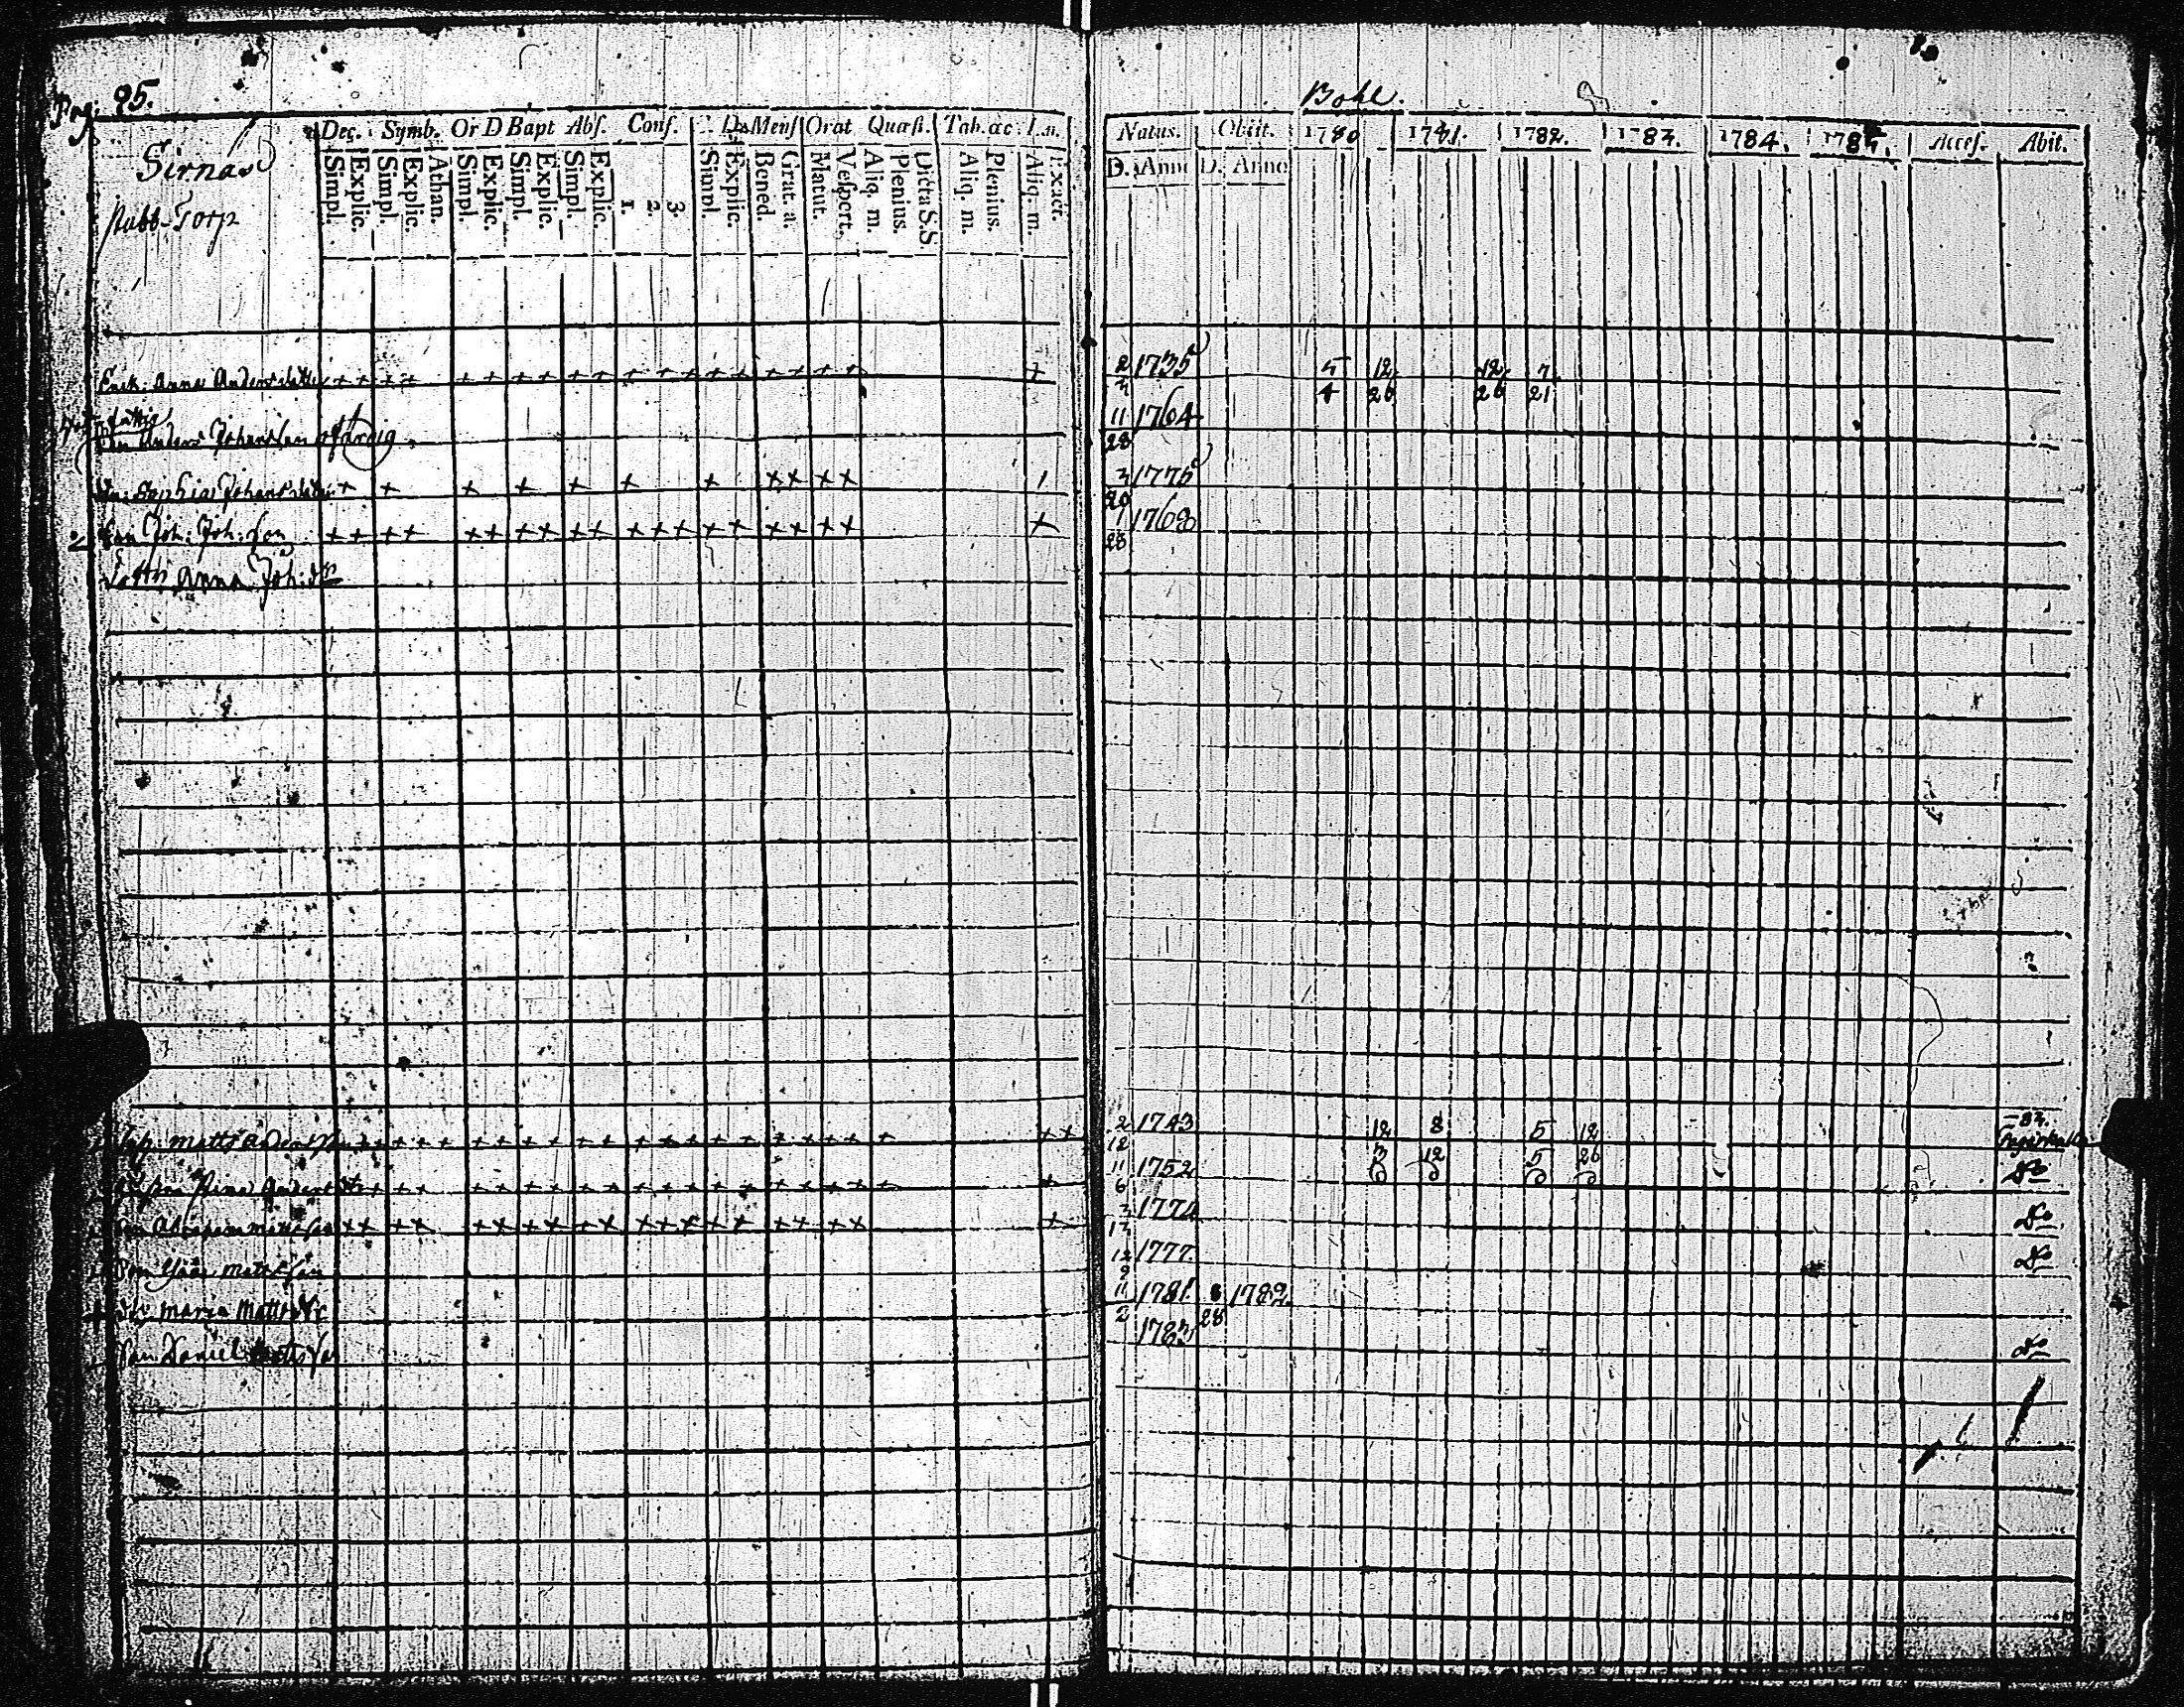 Pag. 95.
Bohl.
Sirnäs
stubb-Torp
Dec. Symb. Or D Bapt Abs. Conf. C. D. Mens Orat Quæst. Tab. œc. I.n.
Simpl. Explic. Simpl. Explic. Athan. Simpl. Explic. Simpl. Explic. Simpl. Explic. 1. 2. 3. Simpl. Explic. Bened. Grat. a. Matut. Vespert. Aliq. m. Plenius. Dicta S.S. Aliq. m. Plenius. Aliq. m. Exact.
Natus. Obiit. 1780 1781. 1782. 1783. 1784. 1785. Acces. Abit.
D. Anno D. Anno
Enk. Anna Andersdotter + + + + + + + + + + + + + + + + + + + 2 1735 5 12 12 7
4 26 26 21
Son Anders Johansson ofärdig 11 1764
28
Sophia Johansdotter + + + + + + + ++ ++ 3 1775
20
Son Joh: Joh: son ++ ++ ++ ++ ++ +++ ++ ++ ++ + 1 1768
23
Anna Joh: dr
Matts Anderss. 2 1743 12 8 5 12 83.
12 3 12 5 26
Stina Anders dr 11 1752 do
6
Son Abraham Matts son ++ ++ ++ ++ ++ +++ ++ ++ ++ + 3 1774 do
13
Son Matts son 12 1777. do
9
Maria Matts dr 11 1781. 8 1782
2 28
Son Daniel Matts son 1783 do